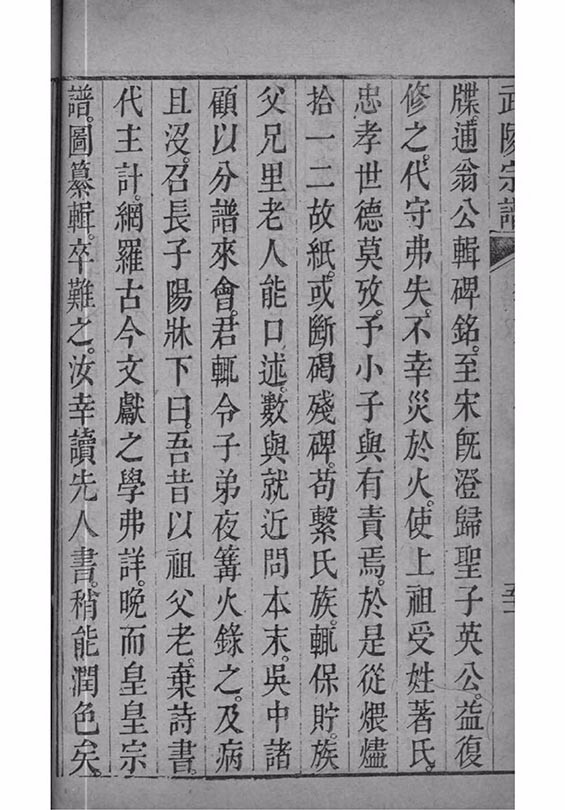 武陵宗譜
牒。逋翁公輯碑銘。至宋既澄歸聖子英公。益復
修之。代守弗失。不幸災於火。使上祖受姓著氏。
忠孝世德莫攷。予小子與有責焉。於是從煨燼
拾一二故紙。或斷碣殘碑。苟繫氏族。輒保貯。族
父兄里老人能口述。數與就近問本末。吳中諸
顧以分譜來會。君輒令子弟夜篝火錄之。及病
且沒。召長子陽牀下曰。吾昔以祖父老。棄詩書。
代主計。網羅古今文獻之學弗詳。晚而皇皇宗
譜。圖纂輯。卒難之。汝幸讀先人書。稍能潤色矣。